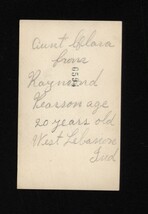 Aunt Clara
from
Raymond
Pearson age
20 years old
West Lebanon
Ind